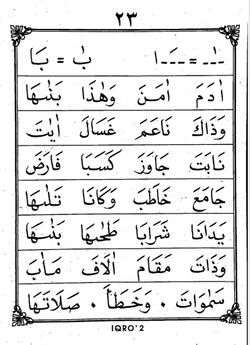 ٢٣
ـٰـ = ـَـ ا    بٰ = بَا
اٰدَمَ اٰمَنَ وَهٰذَا بَنٰىهَا
وَذَاكَ نَاعَمَ غَسَالَ اٰيٰتَ
نَابَتَ جَاوَزَ كَسَبَا فَارَضَ
جَامَعَ خَاطَبَ وَكَانَا تَلٰىهَا
يَدَانَا شَرَابَا طَحٰىهَا بَنٰىهَا
وَذَاتَ مَقَامَ اٰلَافَ مَـاٰبَ
سَمٰوَاتَ ۰ وَخَطَأَ ۰ صَلَاتَهَا
IQRO' 2